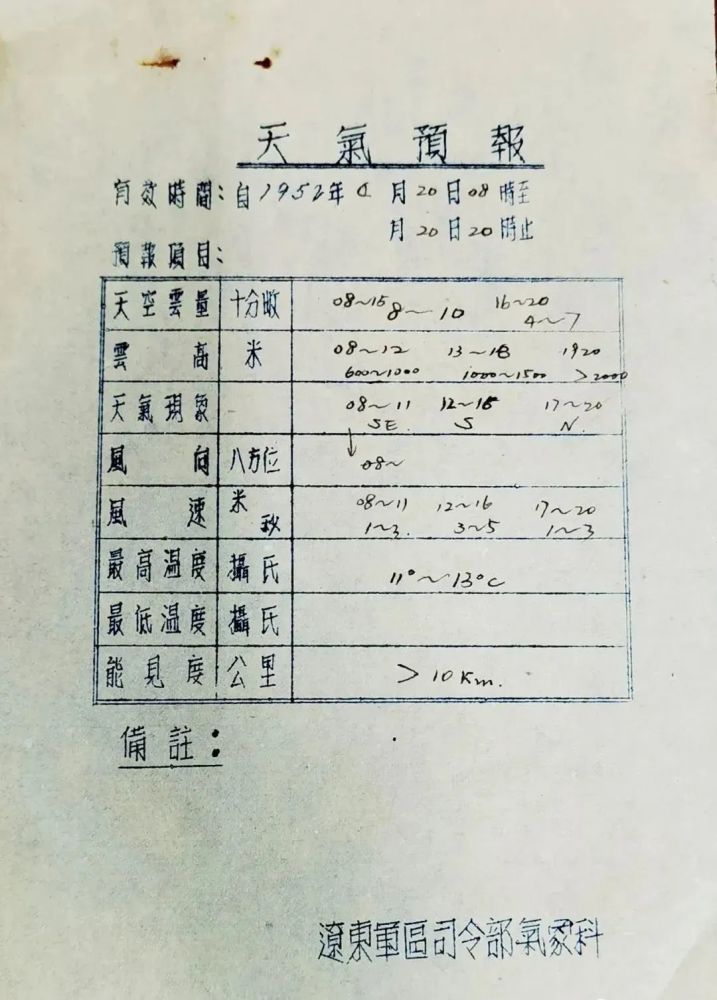 天氣預報
有效時間：自1952年4月20日08時至
月20日20時止
預報項目：
天空雲量 十分收 08~15 16~20
8~10 4~7
雲高 米 08~12 13~18 1920
600~1000 1000~1500 >2000
天氣現象 08~11 12~16 17~20
SE. S N.
風向 八方位 ↓ 08~
風速 米秒 08~11 12~16 17~20
1~3. 3~5 1~3
最高温度 攝氏 11°~13°C
最低温度 攝氏
能見度 公里 >10Km.
備註：
遼東軍區司令部氣象科